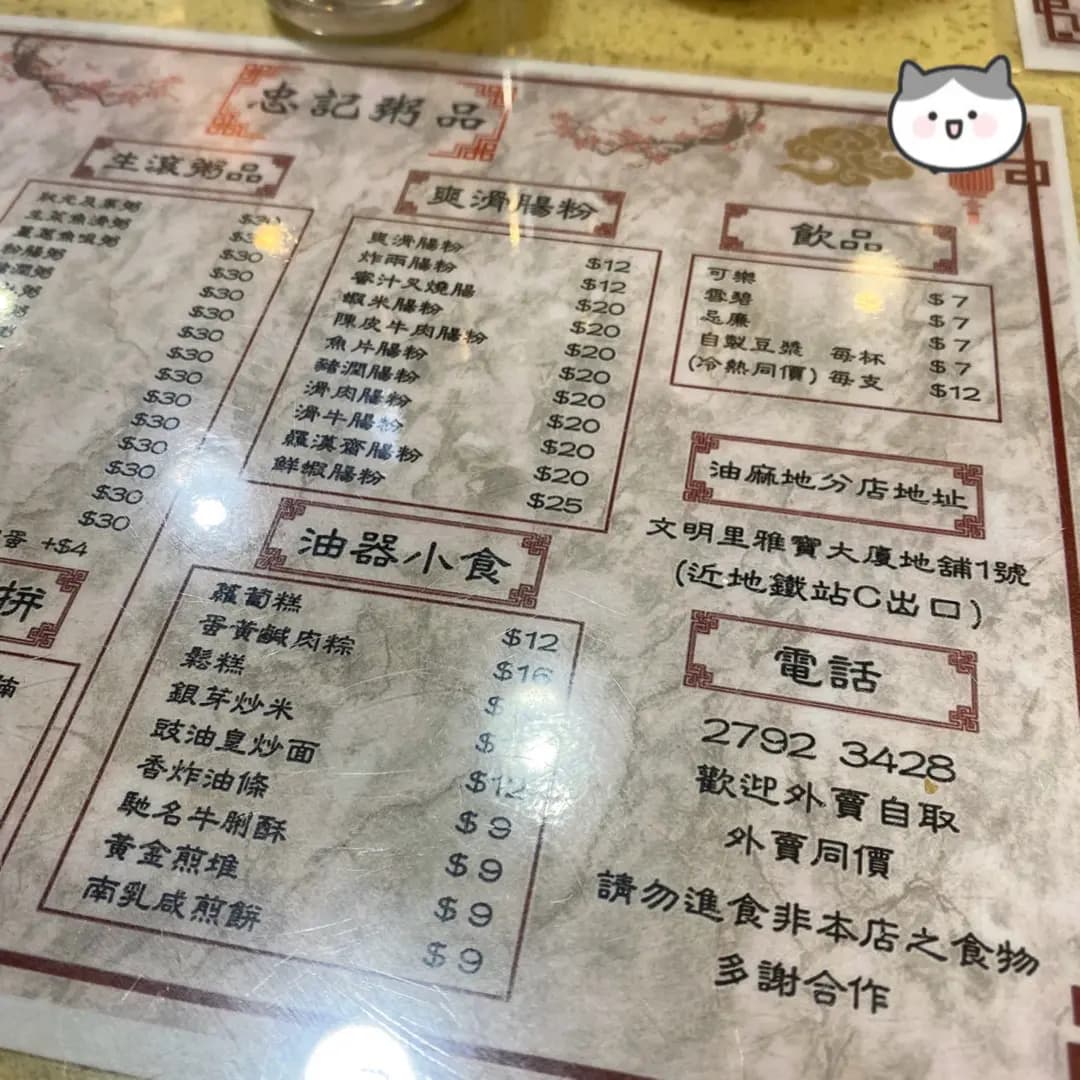 忠記粥品
生滾粥品
狀元及第粥 $30
生菜魚滑粥 $30
薑蔥魚唊粥 $30
粉腸粥 $30
潤粥 $30
粥 $30
$30
$30
$30
$30
$30
$30
$30
蛋 +$4
拚
爽滑腸粉
爽滑腸粉 $12
炸兩腸粉 $12
蜜汁叉燒腸 $20
蝦米腸粉 $20
陳皮牛肉腸粉 $20
魚片腸粉 $20
豬潤腸粉 $20
滑肉腸粉 $20
滑牛腸粉 $20
羅漢齋腸粉 $20
鮮蝦腸粉 $25
油器小食
蘿蔔糕 $12
蛋黃鹹肉粽 $16
鬆糕 $
銀芽炒米 $
豉油皇炒面 $12
香炸油條 $9
馳名牛脷酥 $9
黃金煎堆 $9
南乳咸煎餅 $9
飲品
可樂 $7
雲碧 $7
忌廉 $7
自製豆漿 每杯 $7
(冷熱同價) 每支 $12
油麻地分店地址
文明里雅寶大廈地舖1號
(近地鐵站C出口)
電話
2792 3428
歡迎外賣自取
外賣同價
請勿進食非本店之食物
多謝合作